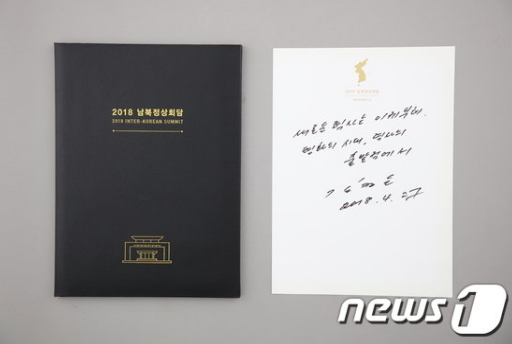 2018 남북정상회담
2018 INTER-KOREAN SUMMIT
2018 남북정상회담
새로운 력사는 이제부터.
평화의 시대, 력사의
출발점에서
김정은
2018. 4. 27
news1